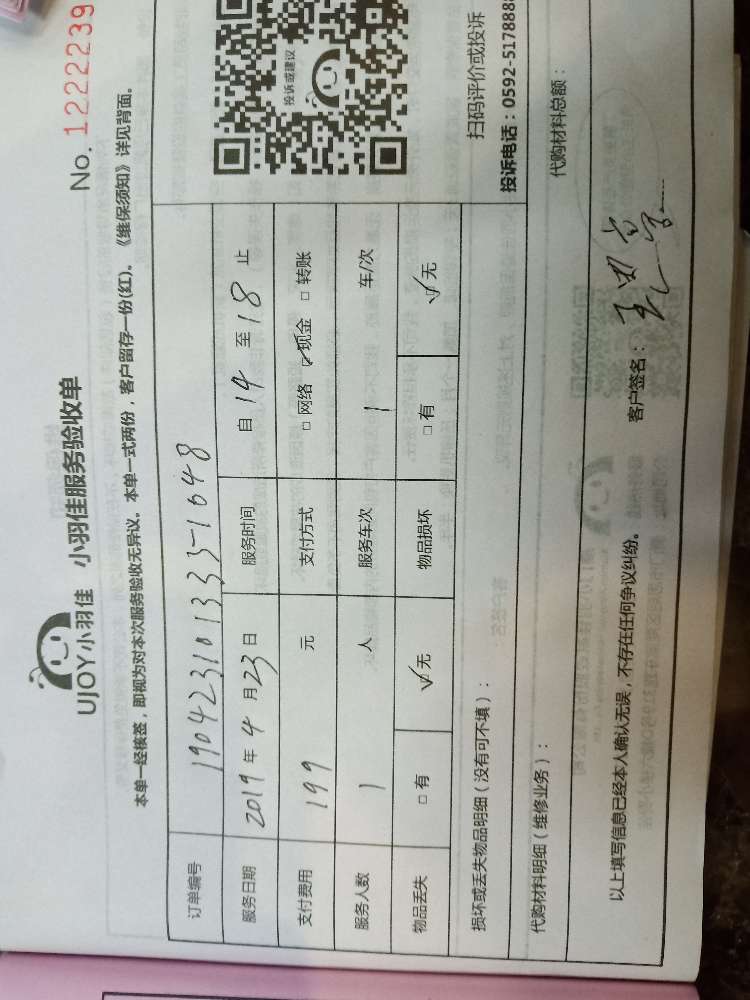 UJOY小羽佳 小羽佳服务验收单 No. 1222239
本单一经核签，即视为对本次服务验收无异议。本单一式两份，客户留存一份(红)。《维保须知》详见背面。
订单编号 190423101333-1648
服务日期 2019年4月23日 服务时间 自14至18止
支付费用 199元 支付方式 □网络 ☑现金 □转账
服务人数 1人 服务车次 1 车/次
物品丢失 □有 ☑无 物品损坏 □有 ☑无
投诉或建议
扫码评价或投诉
投诉电话：0592-5178888
损坏或丢失物品明细（没有可不填）：
代购材料明细（维修业务）： 代购材料总额：
以上填写信息已经本人确认无误，不存在任何争议纠纷。 客户签名：